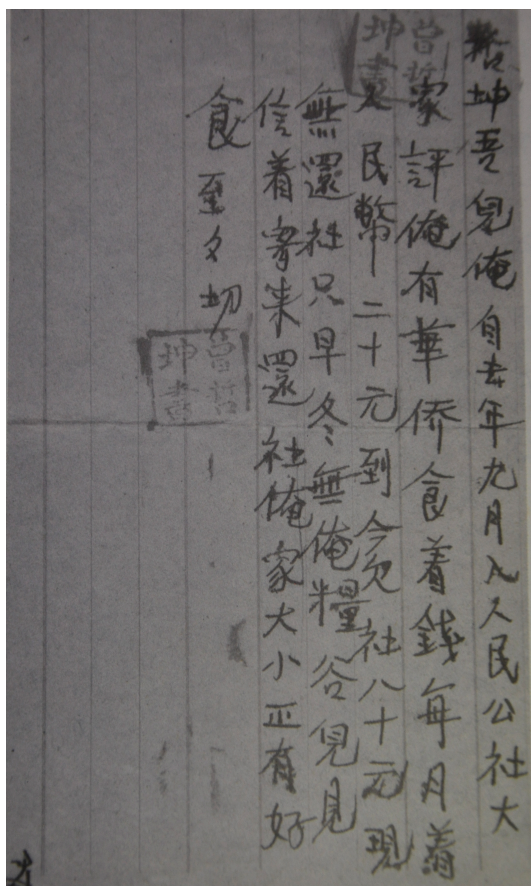 哲坤吾兒俺自去年九月入人民公社大
家評俺有華侨食着錢每月着
人民幣二十元到今欠社八十元現
無還社只早冬無俺糧谷兒見
信着寄来還社俺家大小正有好
食至々切
曾哲
坤書
曾哲
坤書